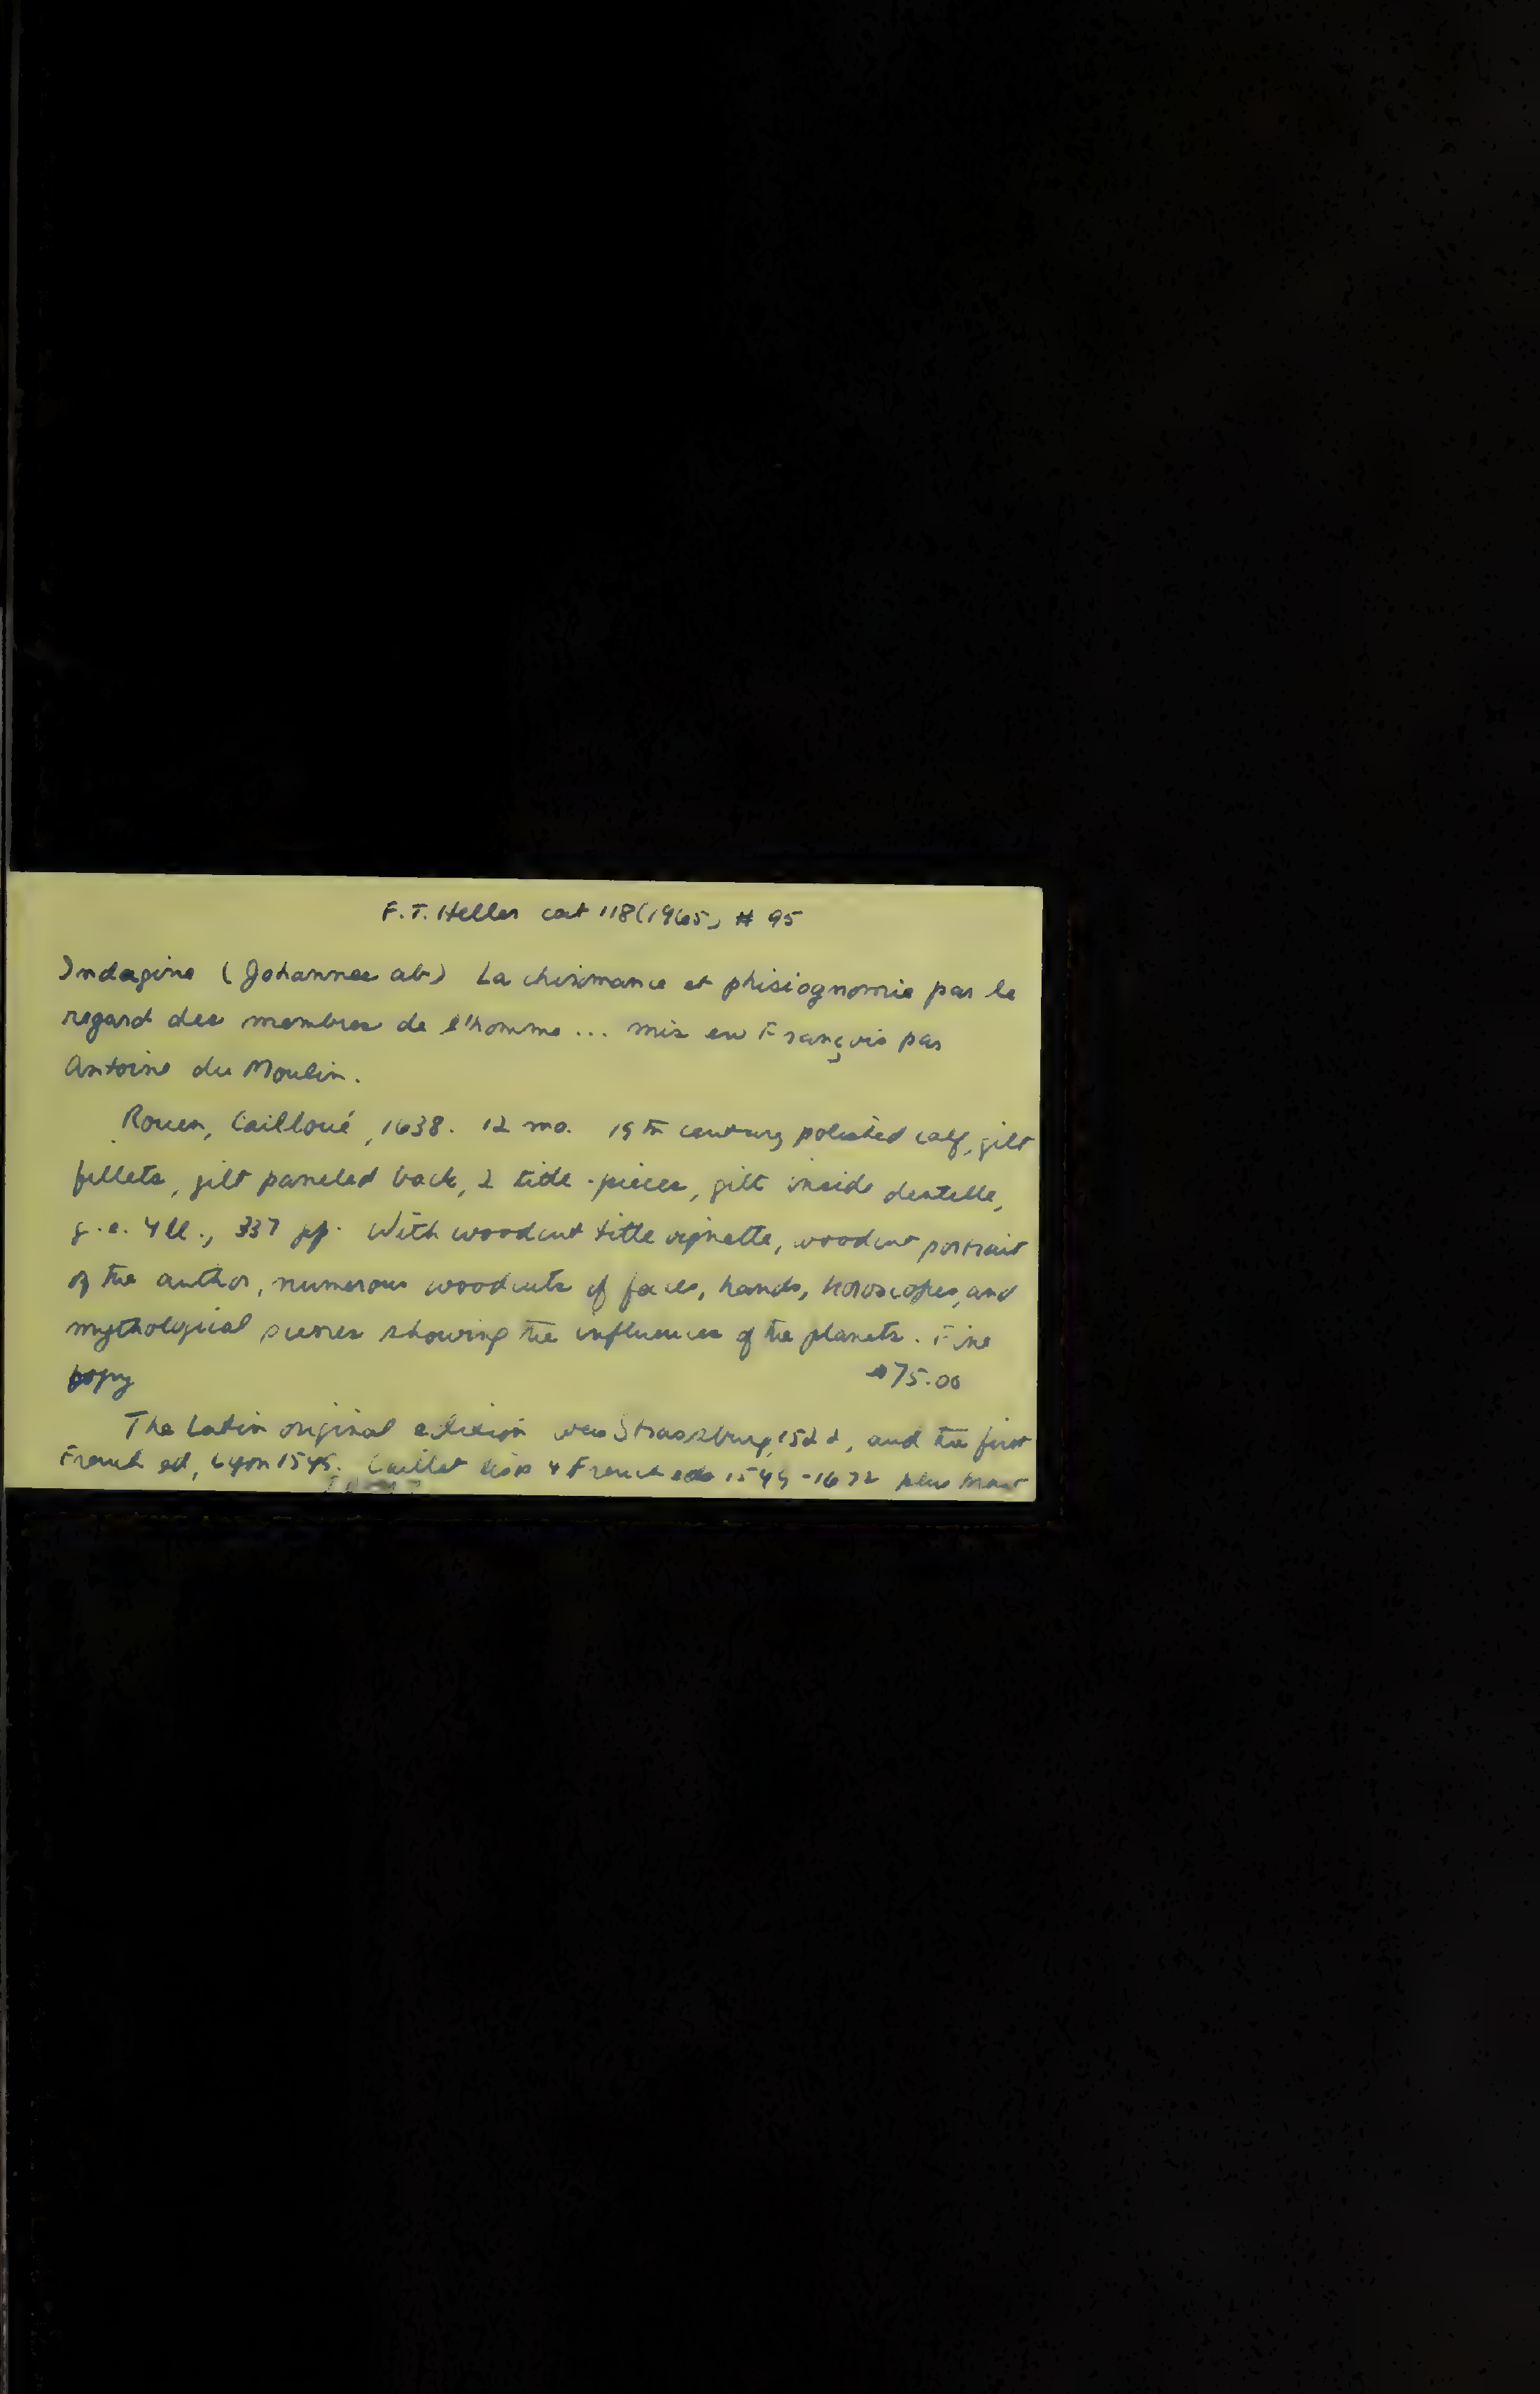 F. T. Heller cat 118 (1965) # 95
Indagine (Johannes ab) La chiromance et phisiognomie par le
regard des membres de l'homme ... mis en François par
Antoine du Moulin.
Rouen, Cailloué, 1638. 12 mo. 19th century polished calf, gilt
fillets, gilt paneled back, 2 title-pieces, gilt inside dentelle,
g.e. 4 ll., 337 pp. With woodcut title vignette, woodcut portrait
of the author, numerous woodcuts of faces, hands, horoscopes, and
mythological scenes showing the influences of the planets. Fine
copy $75.00
The Latin original edition was Strassburg, 1522, and the first
French ed, Lyon 1545. Caillet lists 4 French eds plus